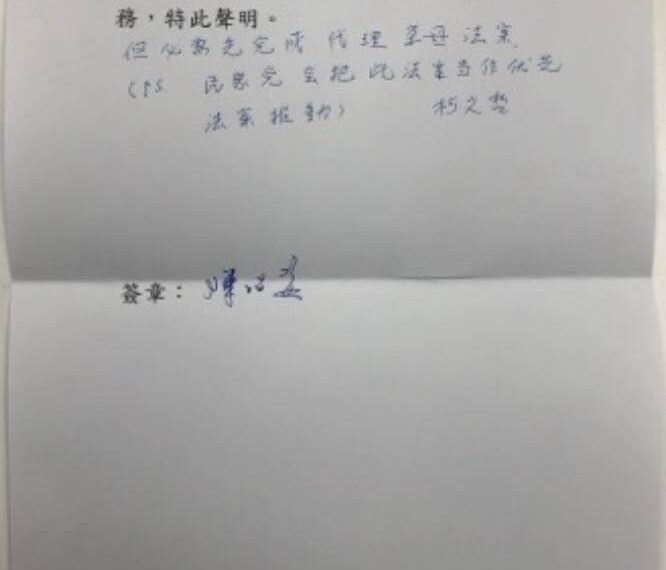 務，特此聲明。
但必需先完成 代理孕母法案
(PS 民眾党会把此法案当作优先
法案推動) 柯文哲
簽章：陳